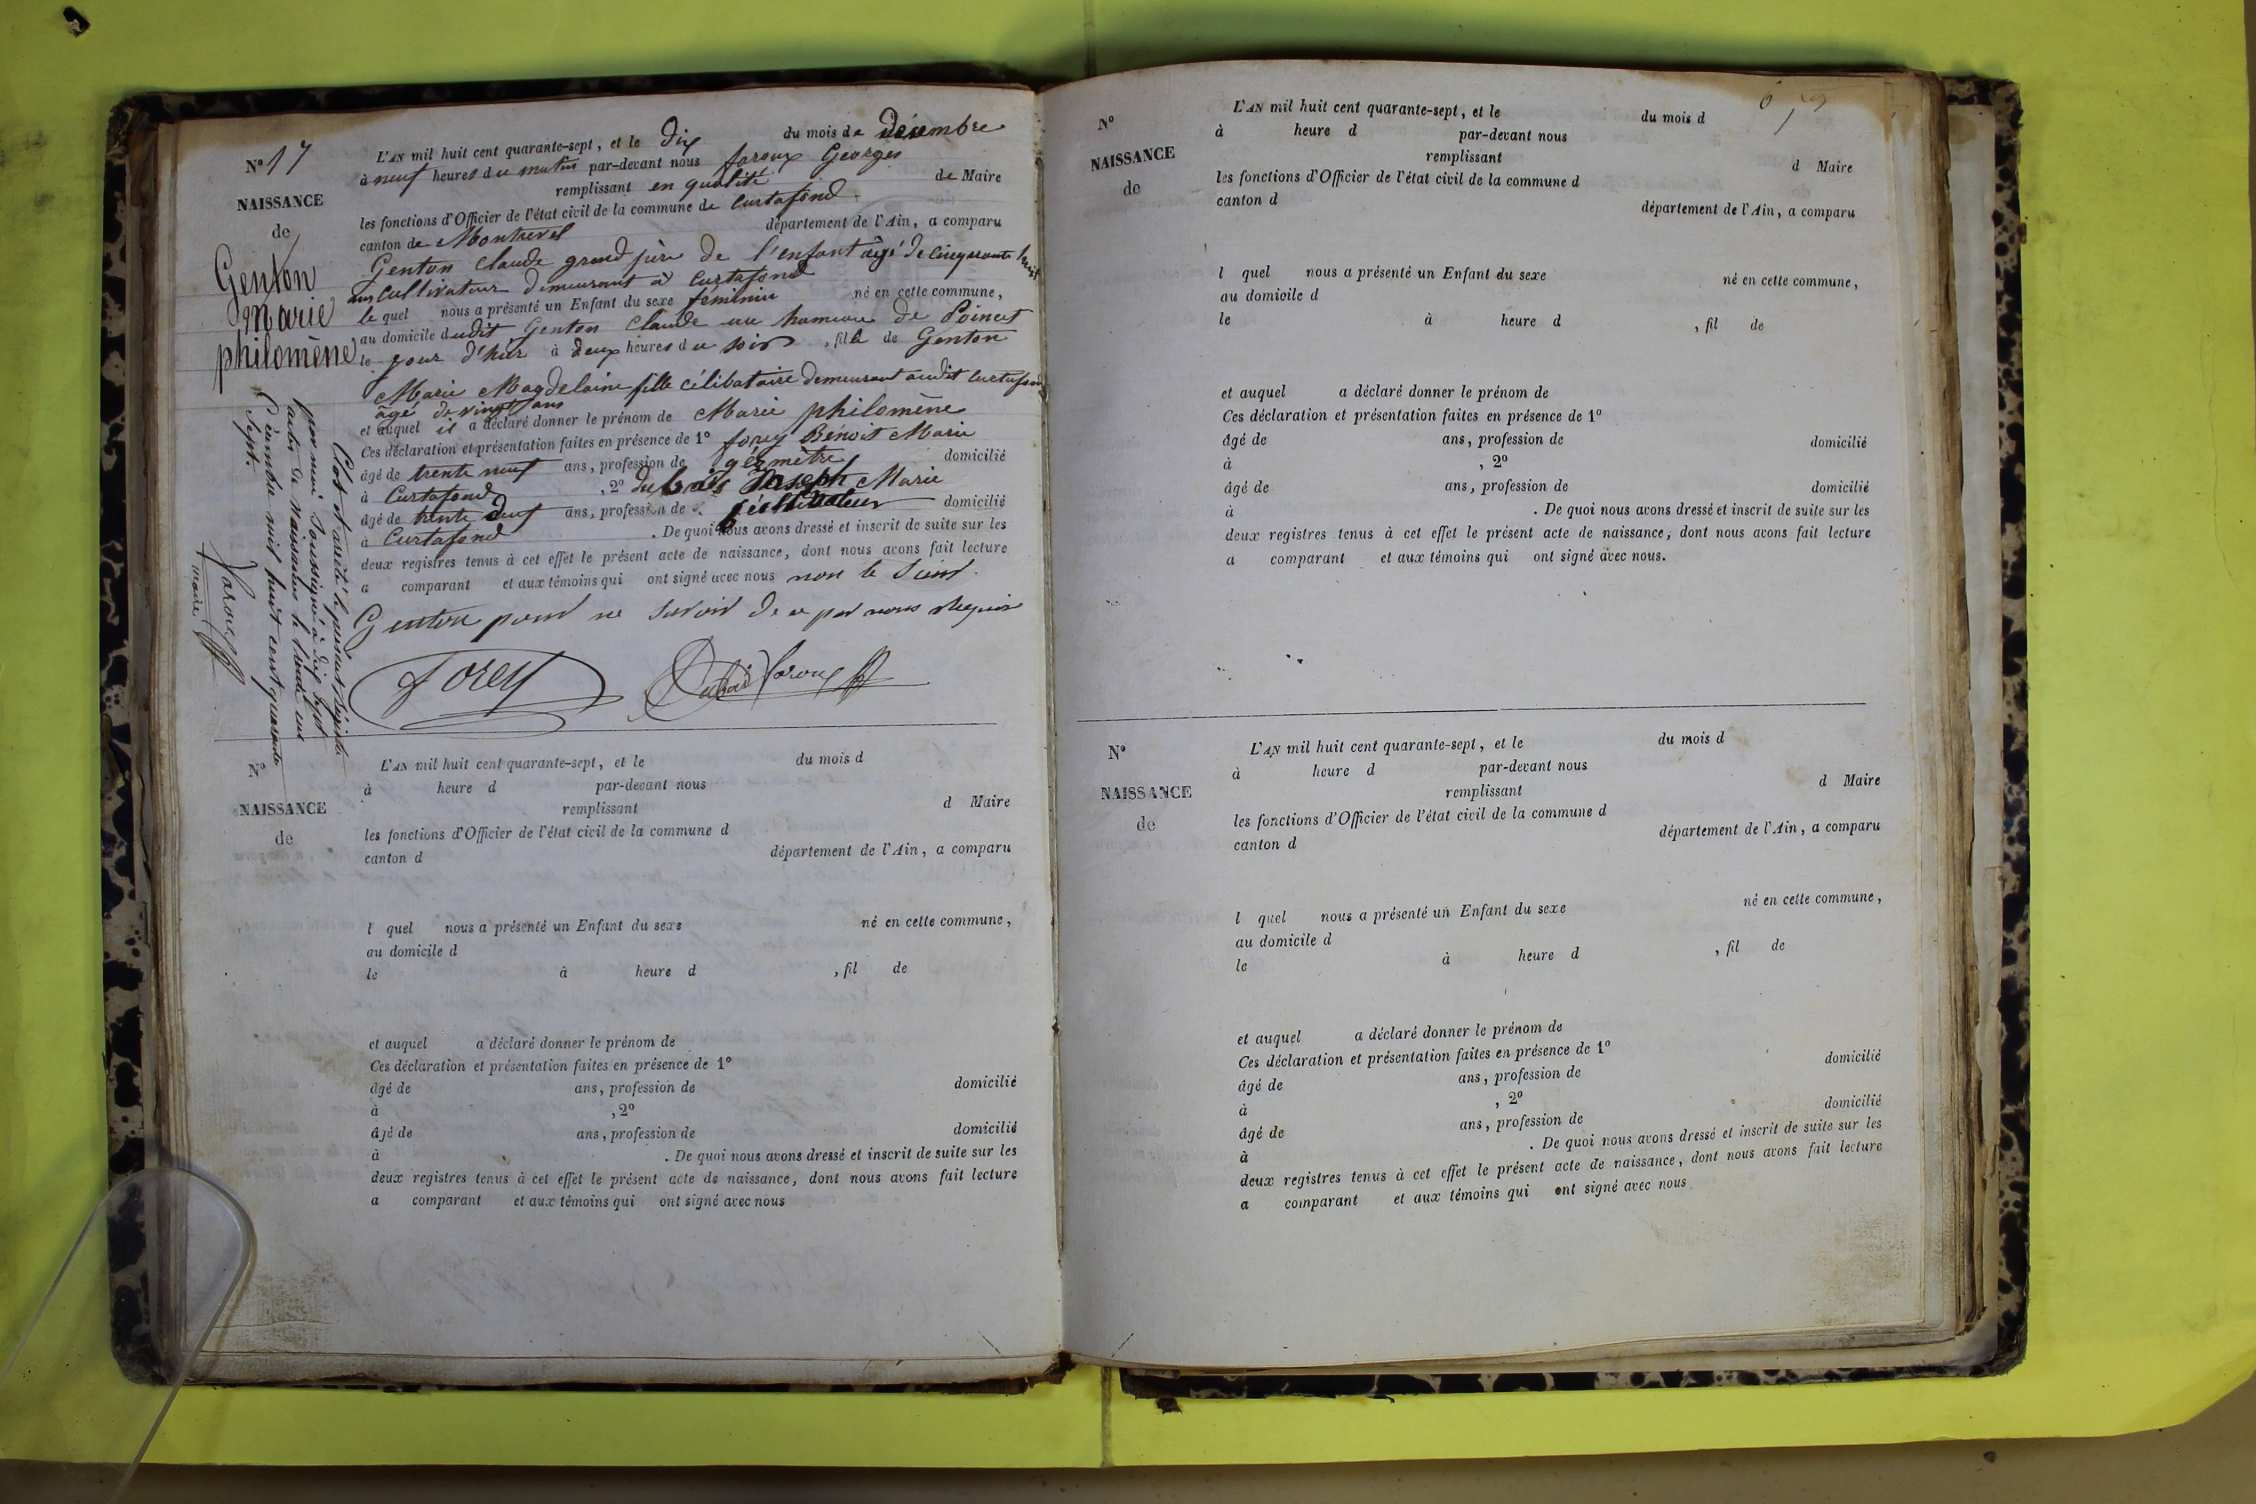 N° 17
NAISSANCE
de
Genton
Marie
philomène
L'AN mil huit cent quarante-sept, et le dix du mois de décembre
à neuf heures du matin par-devant nous faroux Georges
remplissant en qualité de Maire
les fonctions d'Officier de l'état civil de la commune de Curtafond
canton de Montrevel département de l'Ain, a comparu
Genton Claude grand père de l'enfant âgé de cinquante huit
ans cultivateur demeurant à Curtafond
lequel nous a présenté un Enfant du sexe féminin né en cette commune,
au domicile dudit Genton Claude au hameau de
le jour d'hier à deux heures du soir, fille de Genton
Marie Magdelaine fille célibataire demeurant audit Curtafond
âgé de vingt ans
et auquel il a déclaré donner le prénom de Marie philomène
Ces déclaration et présentation faites en présence de 1° forey Benoit Marie
âgé de trente neuf ans, profession de géomètre domicilié
à Curtafond, 2° dubois Joseph Marie
âgé de trente ans, profession de cultivateur domicilié
à Curtafond. De quoi nous avons dressé et inscrit de suite sur les
deux registres tenus à cet effet le présent acte de naissance, dont nous avons fait lecture
a comparant et aux témoins qui ont signé avec nous non le
Genton pour ne savoir de ce par nous requis
Forey Faroux
Clos et arrêté le présent registre
par nous soussigné à dix sept
actes de Naissance le trente un
décembre mil huit cent quarante
sept.
Faroux
maire
N°
NAISSANCE
de
L'AN mil huit cent quarante-sept, et le du mois d
à heure d par-devant nous
remplissant d Maire
les fonctions d'Officier de l'état civil de la commune d
canton d département de l'Ain, a comparu
l quel nous a présenté un Enfant du sexe né en cette commune,
au domicile d
le à heure d , fil de
et auquel a déclaré donner le prénom de
Ces déclaration et présentation faites en présence de 1°
âgé de ans, profession de domicilié
à , 2°
âgé de ans, profession de domicilié
à . De quoi nous avons dressé et inscrit de suite sur les
deux registres tenus à cet effet le présent acte de naissance, dont nous avons fait lecture
a comparant et aux témoins qui ont signé avec nous
N°
NAISSANCE
de
L'AN mil huit cent quarante-sept, et le du mois d
à heure d par-devant nous
remplissant d Maire
les fonctions d'Officier de l'état civil de la commune d
canton d département de l'Ain, a comparu
l quel nous a présenté un Enfant du sexe né en cette commune,
au domicile d
le à heure d , fil de
et auquel a déclaré donner le prénom de
Ces déclaration et présentation faites en présence de 1°
âgé de ans, profession de domicilié
à , 2°
âgé de ans, profession de domicilié
à . De quoi nous avons dressé et inscrit de suite sur les
deux registres tenus à cet effet le présent acte de naissance, dont nous avons fait lecture
a comparant et aux témoins qui ont signé avec nous.
N°
NAISSANCE
de
L'AN mil huit cent quarante-sept, et le du mois d
à heure d par-devant nous
remplissant d Maire
les fonctions d'Officier de l'état civil de la commune d
canton d département de l'Ain, a comparu
l quel nous a présenté un Enfant du sexe né en cette commune,
au domicile d
le à heure d , fil de
et auquel a déclaré donner le prénom de
Ces déclaration et présentation faites en présence de 1°
âgé de ans, profession de domicilié
à , 2°
âgé de ans, profession de domicilié
à . De quoi nous avons dressé et inscrit de suite sur les
deux registres tenus à cet effet le présent acte de naissance, dont nous avons fait lecture
a comparant et aux témoins qui ont signé avec nous